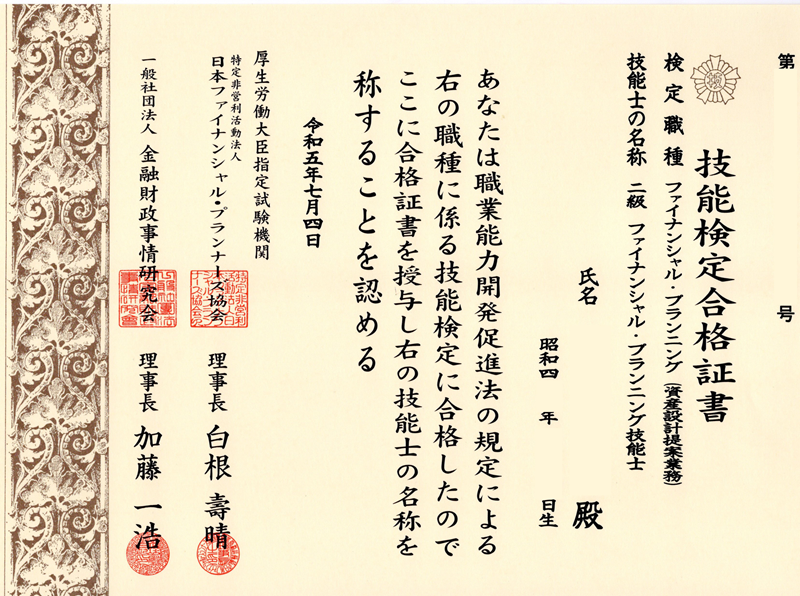 第　号
技能検定合格証書
検定職種 ファイナンシャル・プランニング（資産設計提案業務）
技能士の名称 二級 ファイナンシャル・プランニング技能士
氏名 殿
昭和四 年 日生
あなたは職業能力開発促進法の規定による
右の職種に係る技能検定に合格したので
ここに合格証書を授与し右の技能士の名称を
称することを認める
令和五年七月四日
厚生労働大臣指定試験機関
特定非営利活動法人
日本ファイナンシャル・プランナーズ協会 理事長 白根 壽晴
一般社団法人 金融財政事情研究会 理事長 加藤 一浩